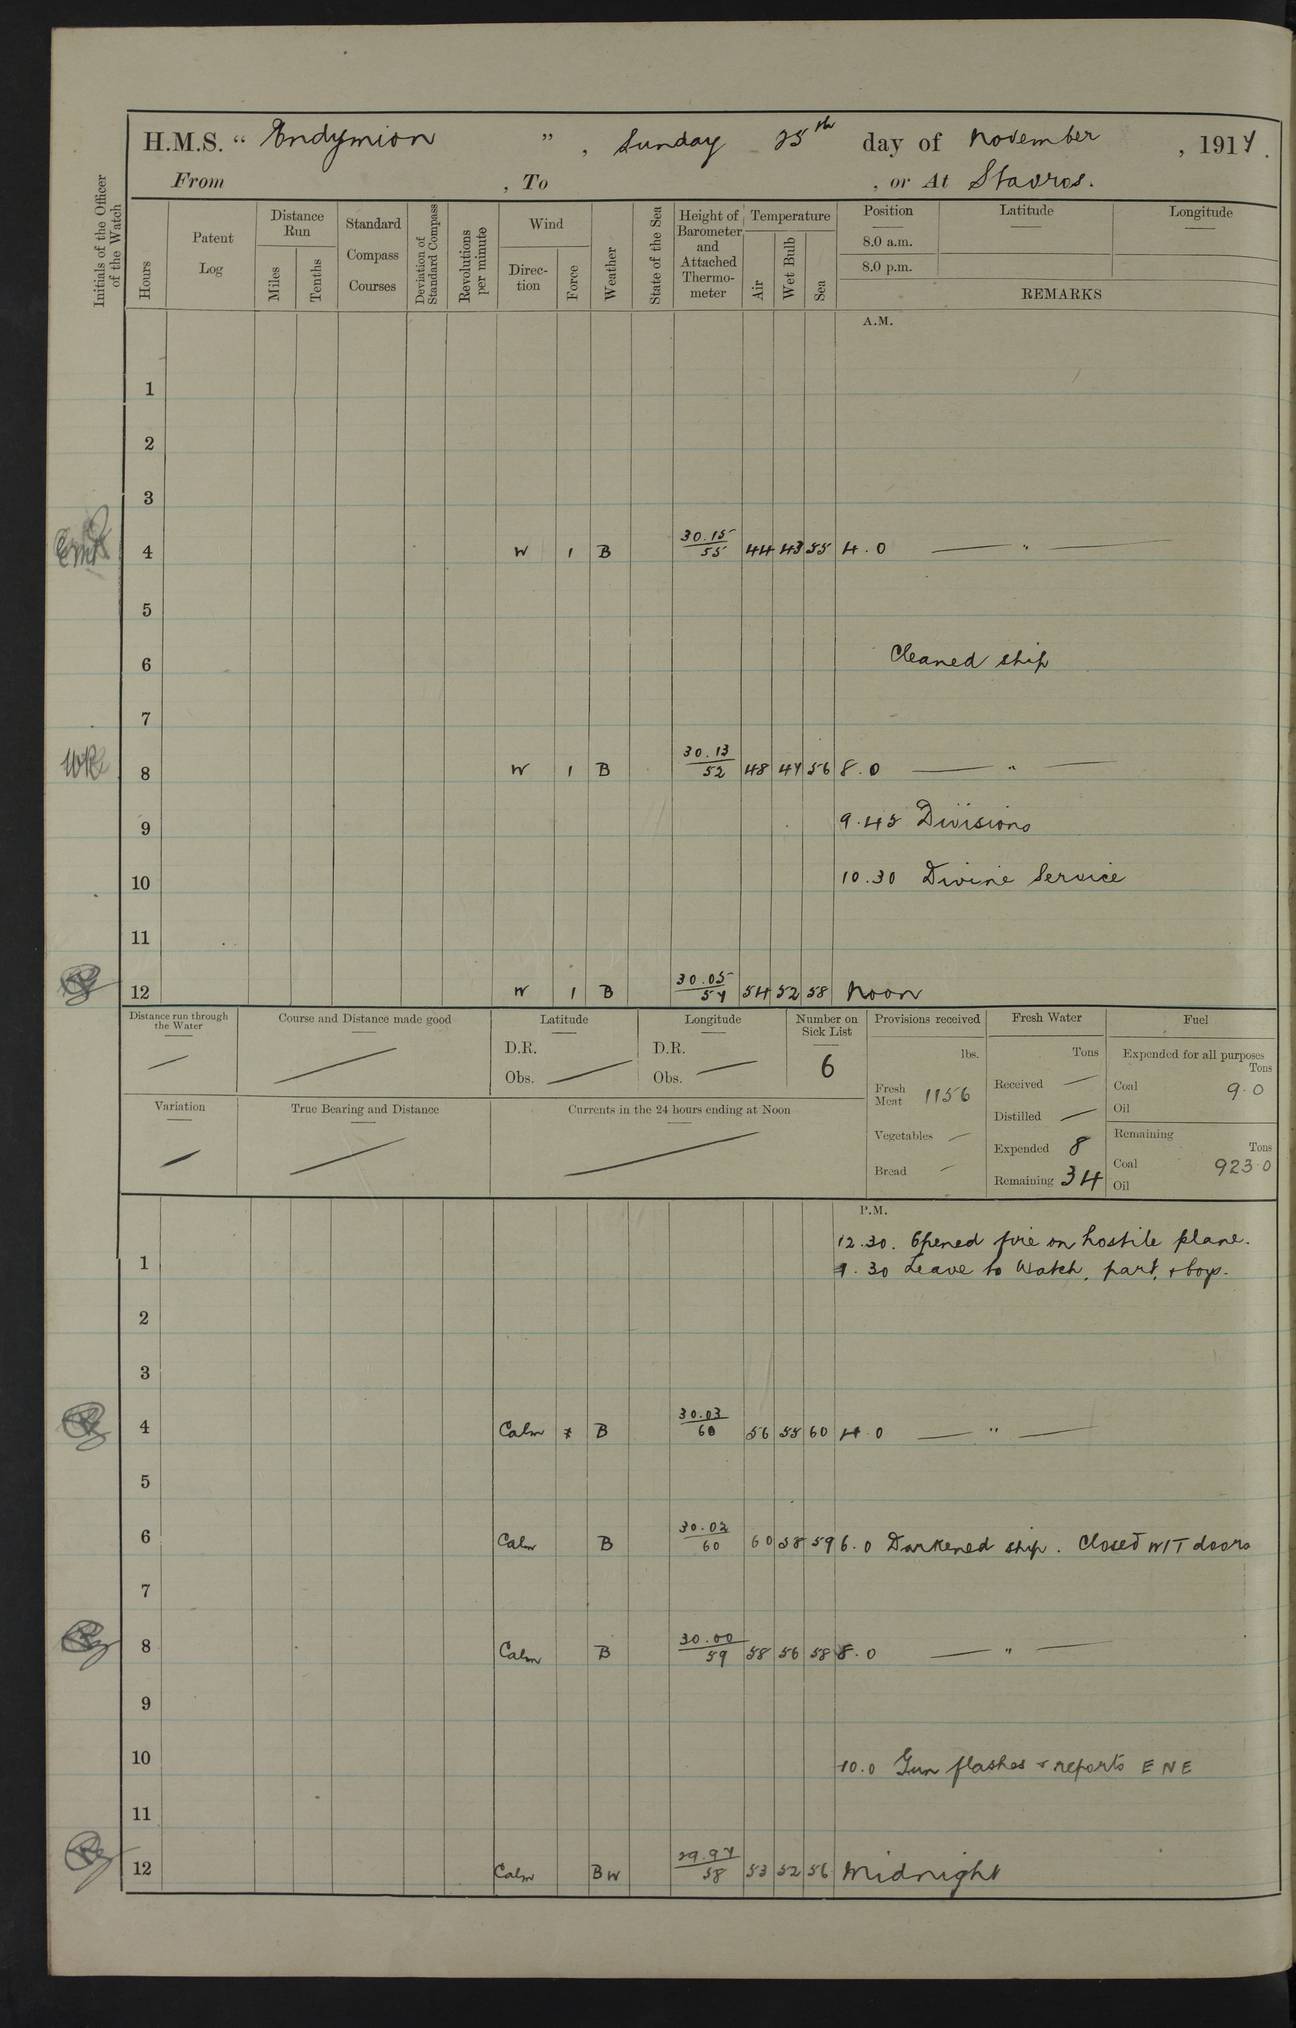 H.M.S. " Endymion " , Sunday 25th day of November , 1917.
From , To , or At Stavros.
Initials of the Officer of the Watch
Hours
Patent Log
Distance Run
Miles
Tenths
Standard Compass Courses
Deviation of Standard Compass
Revolutions per minute
Wind
Direction
Force
Weather
State of the Sea
Height of Barometer and Attached Thermometer
Temperature
Air
Wet Bulb
Sea
Position
8.0 a.m.
8.0 p.m.
Latitude
Longitude
REMARKS
A.M.
1
2
3
4 W 1 B 30.15/55 44 43 55 4.0 — " —
5
6 Cleaned ship
7
8 W 1 B 30.13/52 48 47 56 8.0 — " —
9 9.45 Divisions
10 10.30 Divine Service
11
12 W 1 B 30.05/57 54 52 58 Noon
Distance run through the Water —
Course and Distance made good —
Latitude
D.R.
Obs. —
Longitude
D.R.
Obs. —
Number on Sick List
6
Provisions received
lbs.
Fresh Meat 1156
Vegetables —
Bread —
Fresh Water
Tons
Received —
Distilled —
Expended 8
Remaining 34
Fuel
Expended for all purposes
Tons
Coal 9.0
Oil
Remaining
Tons
Coal 923.0
Oil
Variation —
True Bearing and Distance —
Currents in the 24 hours ending at Noon —
P.M.
12.30. Opened fire on hostile plane.
1 1.30 Leave to Watch, part, & boys.
2
3
4 Calm B 30.03/60 56 55 60 4.0 — " —
5
6 Calm B 30.02/60 60 58 59 6.0 Darkened ship. Closed W/T doors
7
8 Calm B 30.00/59 58 56 58 8.0 — " —
9
10 10.0 Gun flashes & reports ENE
11
12 Calm BW 29.97/58 53 52 56 Midnight